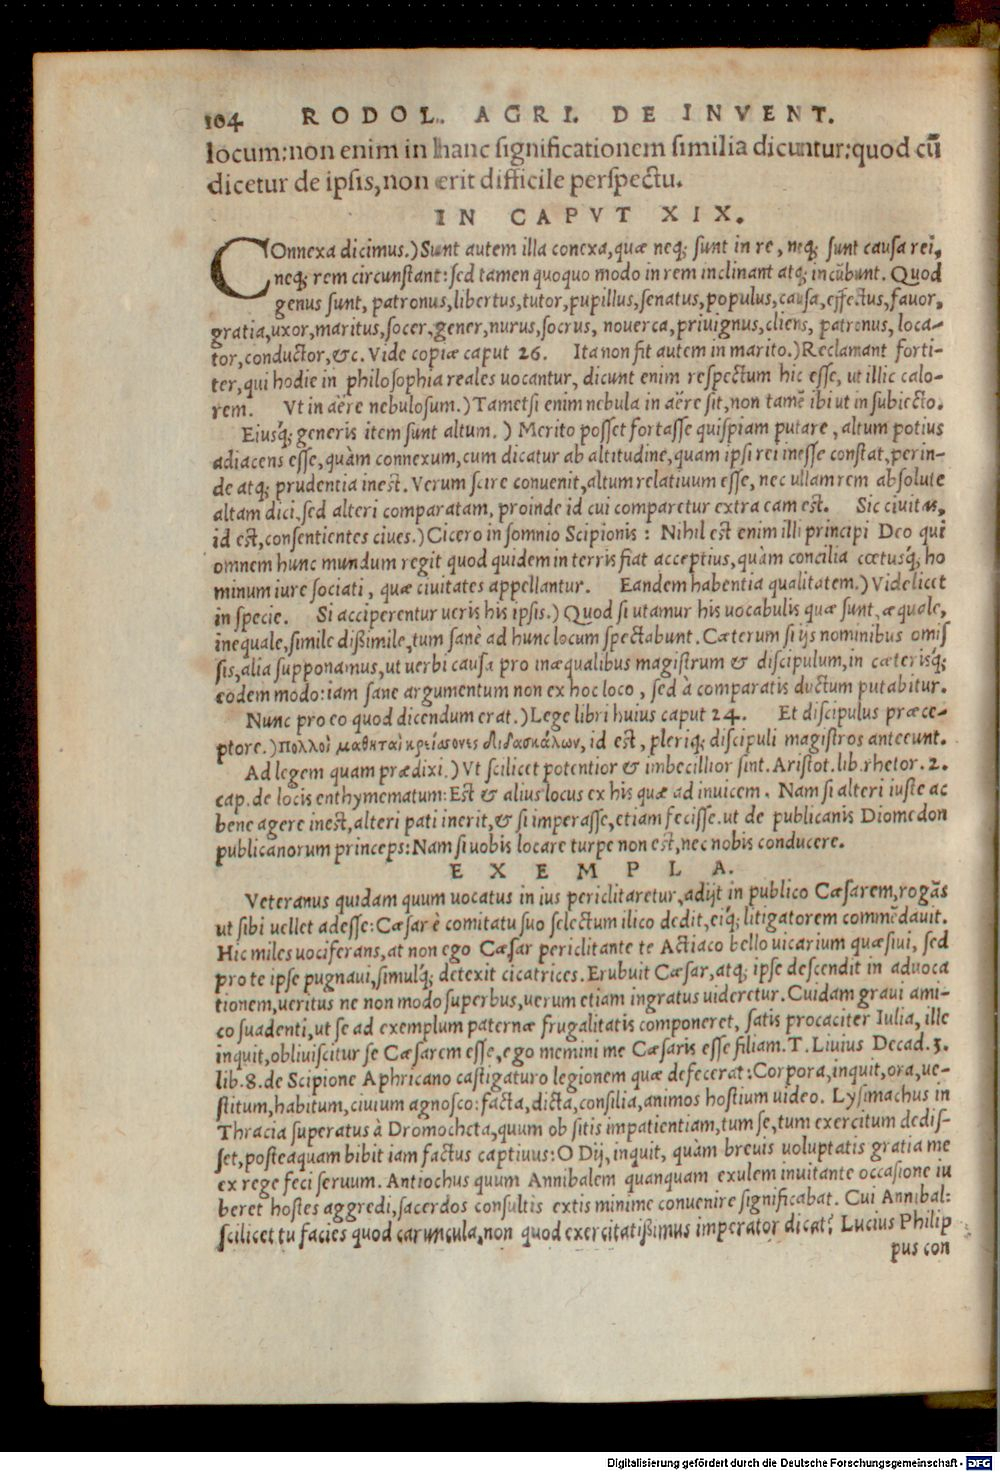 104 RODOL. AGRI. DE INVENT.
locum: non enim in hanc significationem similia dicuntur: quod cū
dicetur de ipsis, non erit difficile perspectu.
IN CAPVT XIX.
COnnexa dicimus.) Sunt autem illa conexa, quæ neq; sunt in re, neq; sunt causa rei,
neq; rem circunstant: sed tamen quoquo modo in rem inclinant atq; incūbunt. Quod
genus sunt, patronus, libertus, tutor, pupillus, senatus, populus, causa, effectus, fauor,
gratia, uxor, maritus, socer, gener, nurus, socrus, nouerca, priuignus, cliens, patronus, loca-
tor, conductor, &c. Vide copiæ caput 26. Ita non fit autem in marito.) Reclamant forti-
ter, qui hodie in philosophia reales uocantur, dicunt enim respectum hic esse, ut illic calo-
rem. Vt in aëre nebulosum.) Tametsi enim nebula in aëre sit, non tamē ibi ut in subiecto.
Eiusq́; generis item sunt altum.) Merito posset fortasse quispiam putare, altum potius
adiacens esse, quàm connexum, cum dicatur ab altitudine, quam ipsi rei inesse constat, perin-
de atq; prudentia inest. Verum scire conuenit, altum relatiuum esse, nec ullam rem absolute
altam dici, sed alteri comparatam, proinde id cui comparetur extra eam est. Sic ciuitas,
id est, consentientes ciues.) Cicero in somnio Scipionis: Nihil est enim illi principi Deo qui
omnem hunc mundum regit quod quidem in terris fiat acceptius, quàm concilia cœtusq́; ho
minum iure sociati, quæ ciuitates appellantur. Eandem habentia qualitatem.) Videlicet
in specie. Si acciperentur ueris his ipsis.) Quod si utamur his uocabulis quæ sunt, æquale,
inequale, simile dißimile, tum sanè ad hunc locum spectabunt. Cæterum si ijs nominibus omis
sis, alia supponamus, ut uerbi causa pro inæqualibus magistrum & discipulum, in cæterisq́;
eodem modo: iam sane argumentum non ex hoc loco, sed à comparatis ductum putabitur.
Nunc pro eo quod dicendum erat.) Lege libri huius caput 24. Et discipulus præce-
ptore.) πολλοὶ μαθηταὶ κρείασονες διδασκάλων, id est, pleriq; discipuli magistros anteeunt.
Ad legem quam prædixi.) Vt scilicet potentior & imbecillior sint. Aristot. lib. rhetor. 2.
cap. de locis enthymematum: Est & alius locus ex his quæ ad inuicem. Nam si alteri iuste ac
bene agere inest, alteri pati inerit, & si imperasse, etiam fecisse. ut de publicanis Diomedon
publicanorum princeps: Nam si uobis locare turpe non est, nec nobis conducere.
EXEMPLA.
Veteranus quidam quum uocatus in ius periclitaretur, adijt in publico Cæsarem, rogās
ut sibi uellet adesse: Cæsar è comitatu suo selectum ilico dedit, eiq́; litigatorem commēdauit.
Hic miles uociferans, at non ego Cæsar periclitante te Actiaco bello uicarium quæsiui, sed
pro te ipse pugnaui, simulq́; detexit cicatrices. Erubuit Cæsar, atq; ipse descendit in aduoca
tionem, ueritus ne non modo superbus, uerum etiam ingratus uideretur. Cuidam graui ami-
co suadenti, ut se ad exemplum paternæ frugalitatis componeret, satis procaciter Iulia, ille
inquit, obliuiscitur se Cæsarem esse, ego memini me Cæsaris esse filiam. T. Liuius Decad. 3.
lib. 8. de Scipione Aphricano castigaturo legionem quæ defecerat: Corpora, inquit, ora, ue-
stitum, habitum, ciuium agnosco: facta, dicta, consilia, animos hostium uideo. Lysimachus in
Thracia superatus à Dromocheta, quum ob sitis impatientiam, tum se, tum exercitum dedis-
set, posteaquam bibit iam factus captiuus: O Dij, inquit, quàm breuis uoluptatis gratia me
ex rege feci seruum. Antiochus quum Annibalem quanquam exulem inuitante occasione iu
beret hostes aggredi, sacerdos consultis extis minime conuenire significabat. Cui Annibal:
scilicet tu facies quod caruncula, non quod exercitatißimus imperator dicat? Lucius Philip
pus con
Digitalisierung gefördert durch die Deutsche Forschungsgemeinschaft - DFG